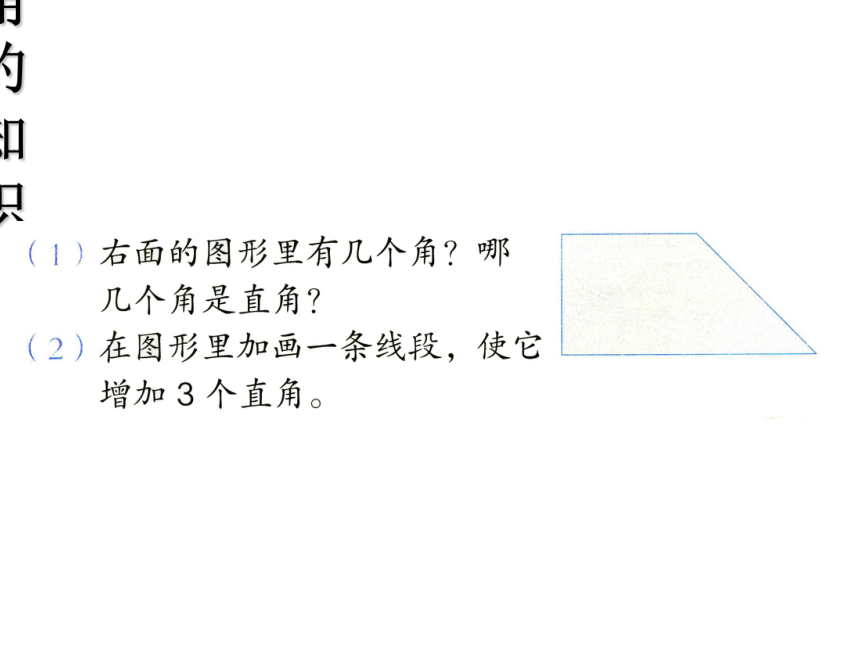 的
（1）右面的图形里有几个角？哪
几个角是直角？
（2）在图形里加画一条线段，使它
增加 3 个直角。